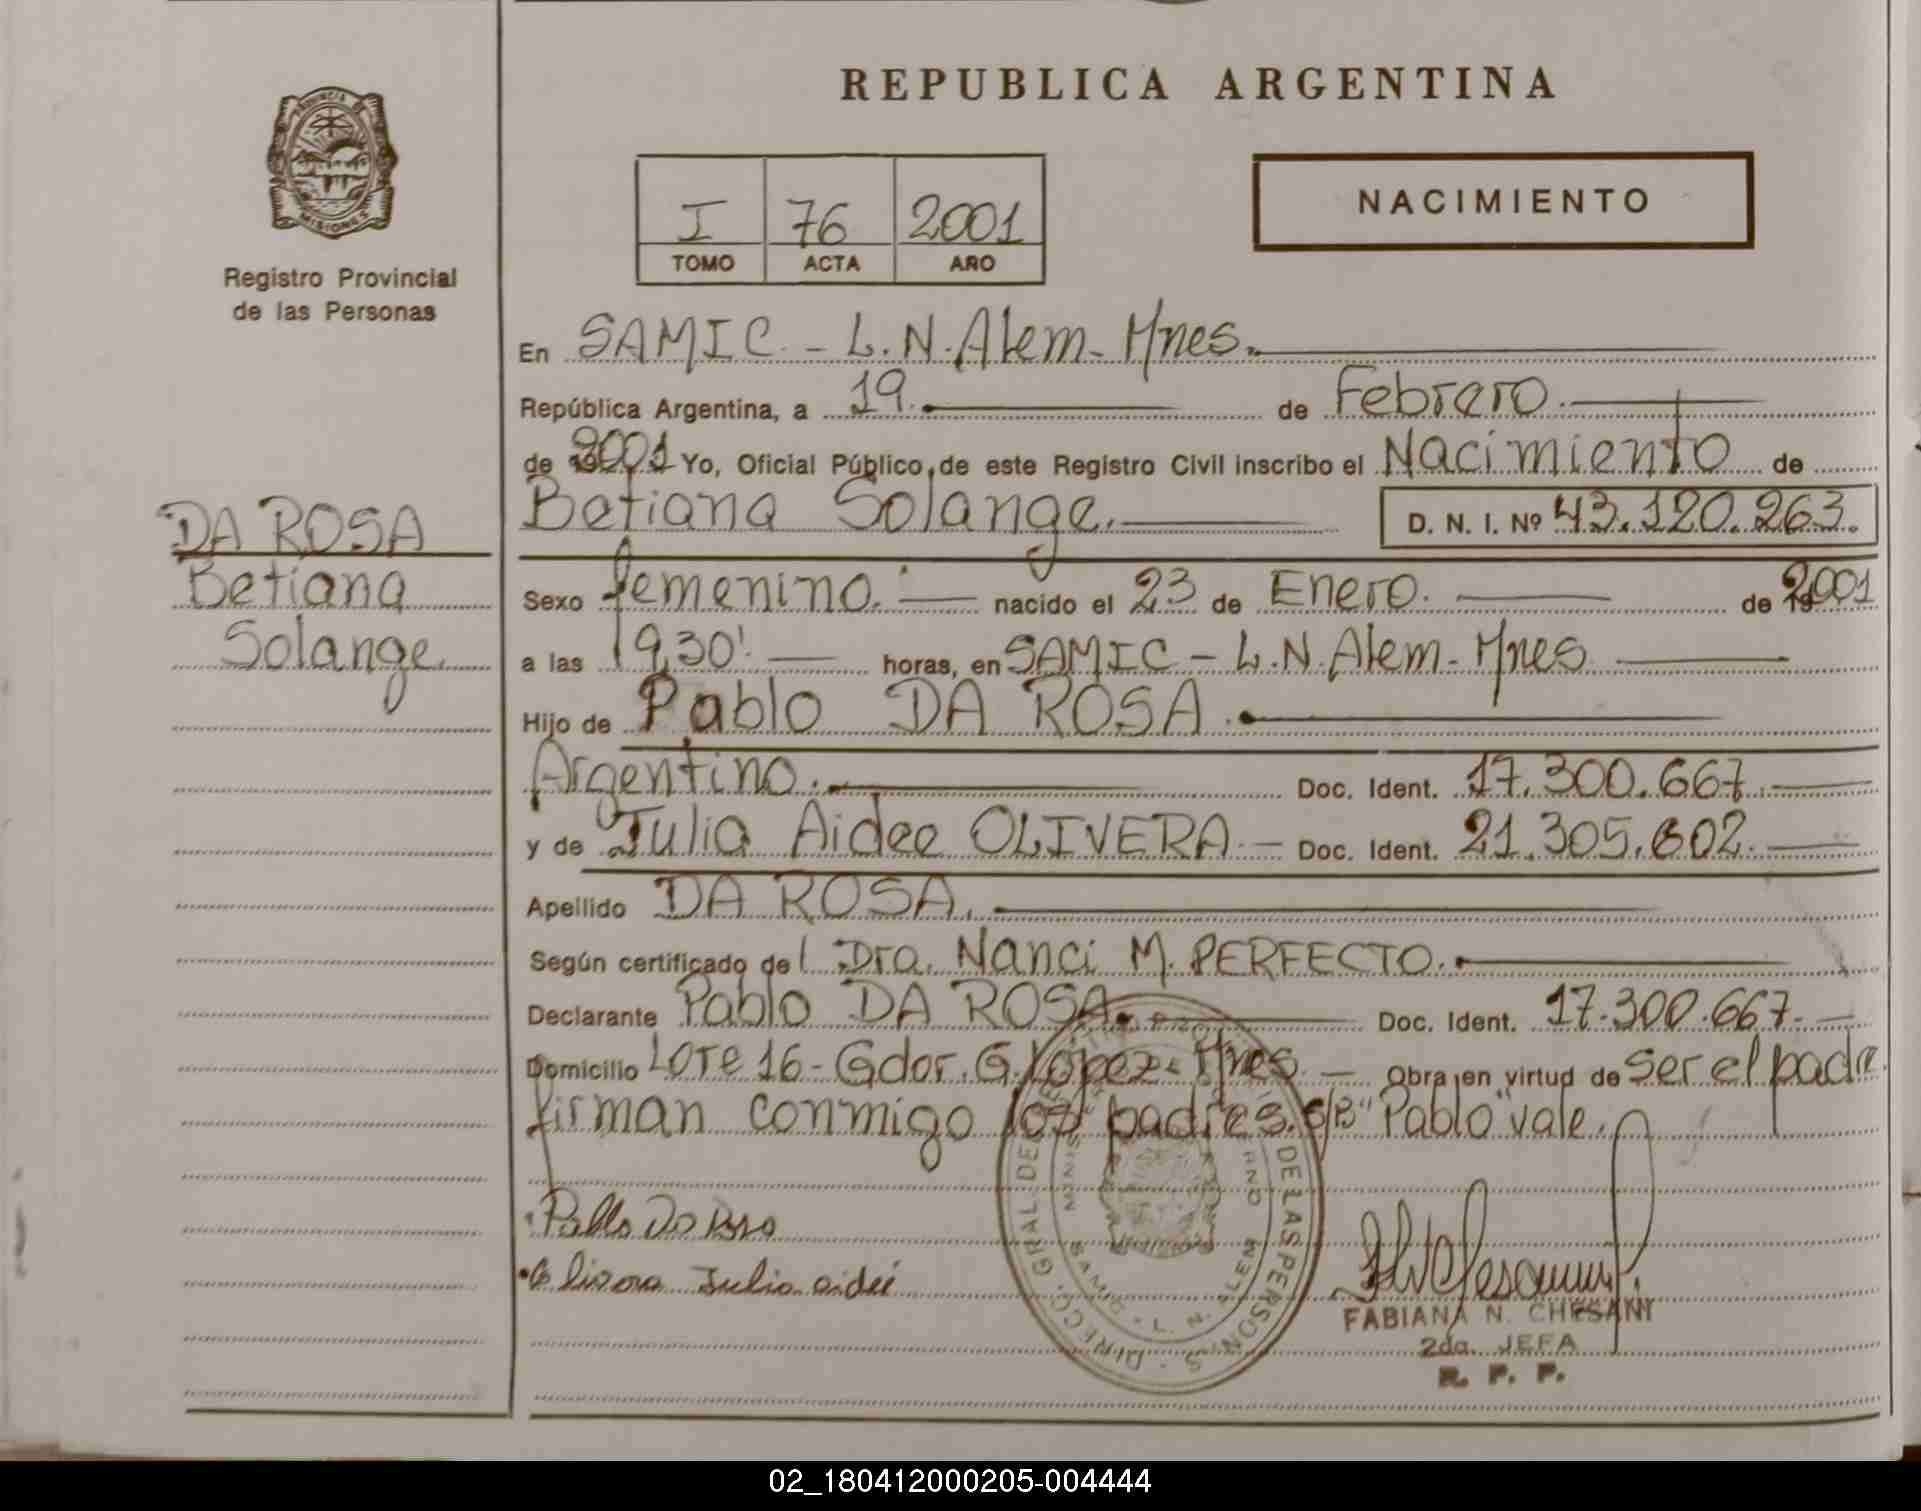 REPUBLICA ARGENTINA
PROVINCIA DE
MISIONES
Registro Provincial
de las Personas
NACIMIENTO
I 76 2001
TOMO ACTA AÑO
En SAMIC. - L.N. Alem - Mnes.
República Argentina, a 19. de Febrero.
de 2001 Yo, Oficial Público de este Registro Civil inscribo el Nacimiento de
Betiana Solange. D. N. I. Nº 43.120.263.
DA ROSA
Betiana
Solange.
Sexo femenino. nacido el 23 de Enero. de 2001
a las 19,30' horas, en SAMIC - L.N. Alem - Mnes
Hijo de Pablo DA ROSA.
Argentino. Doc. Ident. 17.300.667.
y de Julia Aidee OLIVERA. Doc. Ident. 21.305.602.
Apellido DA ROSA.
Según certificado de l Dra. Nanci M. PERFECTO.
Declarante Pablo DA ROSA. Doc. Ident. 17.300.667.
Domicilio Lote 16 - Gdor. G. López - Mnes. Obra en virtud de ser el padre
firman conmigo los padres. S/B "Pablo" vale.
Pablo Da Rosa
Olivera Julia aideé
DIRECC. GRAL. DE DE LAS PERSONAS
SAMIC - L. N. ALEM
FABIANA N. CHESANI
2da. JEFA
R. P. P.
02_180412000205-004444